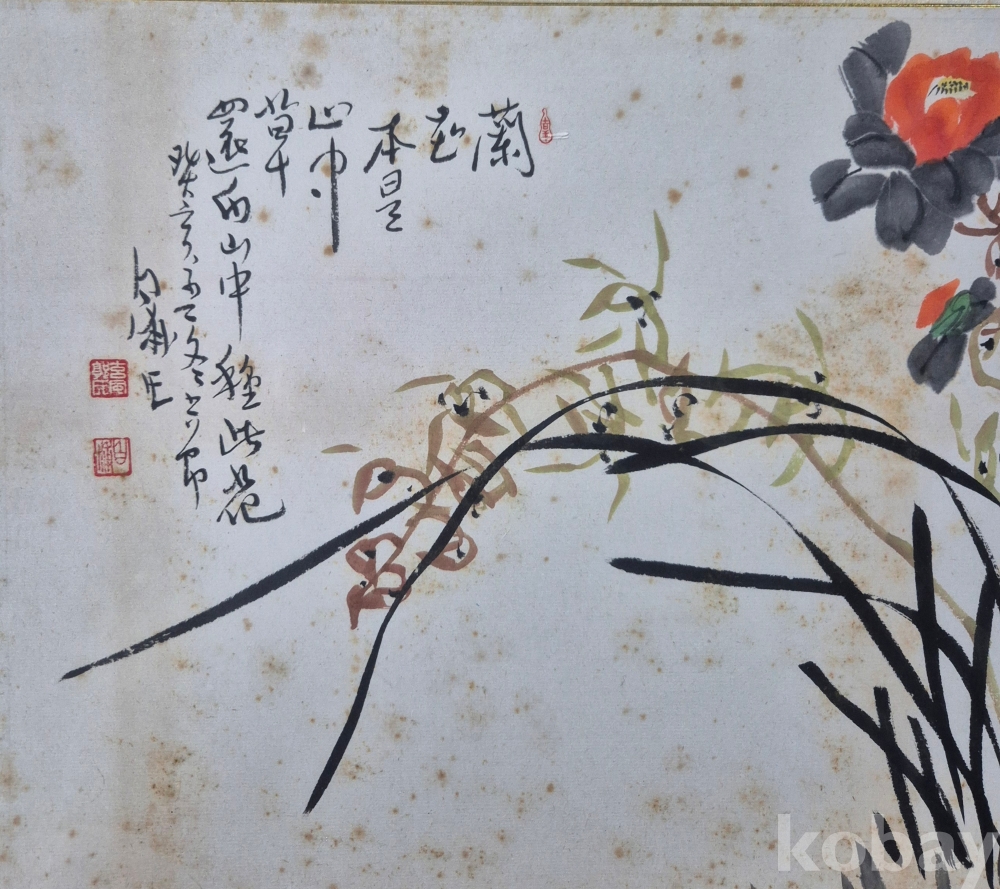 蘭
花
本是
山中
草
還向山中種此花
癸亥冬節
kobay